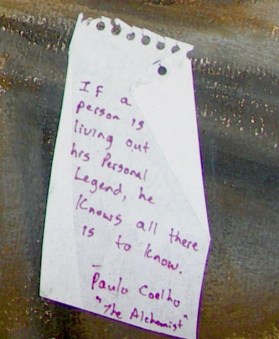 If a
person is
living out
his Personal
Legend, he
Knows all there
is to know.
- Paulo Coelho
"The Alchemist"